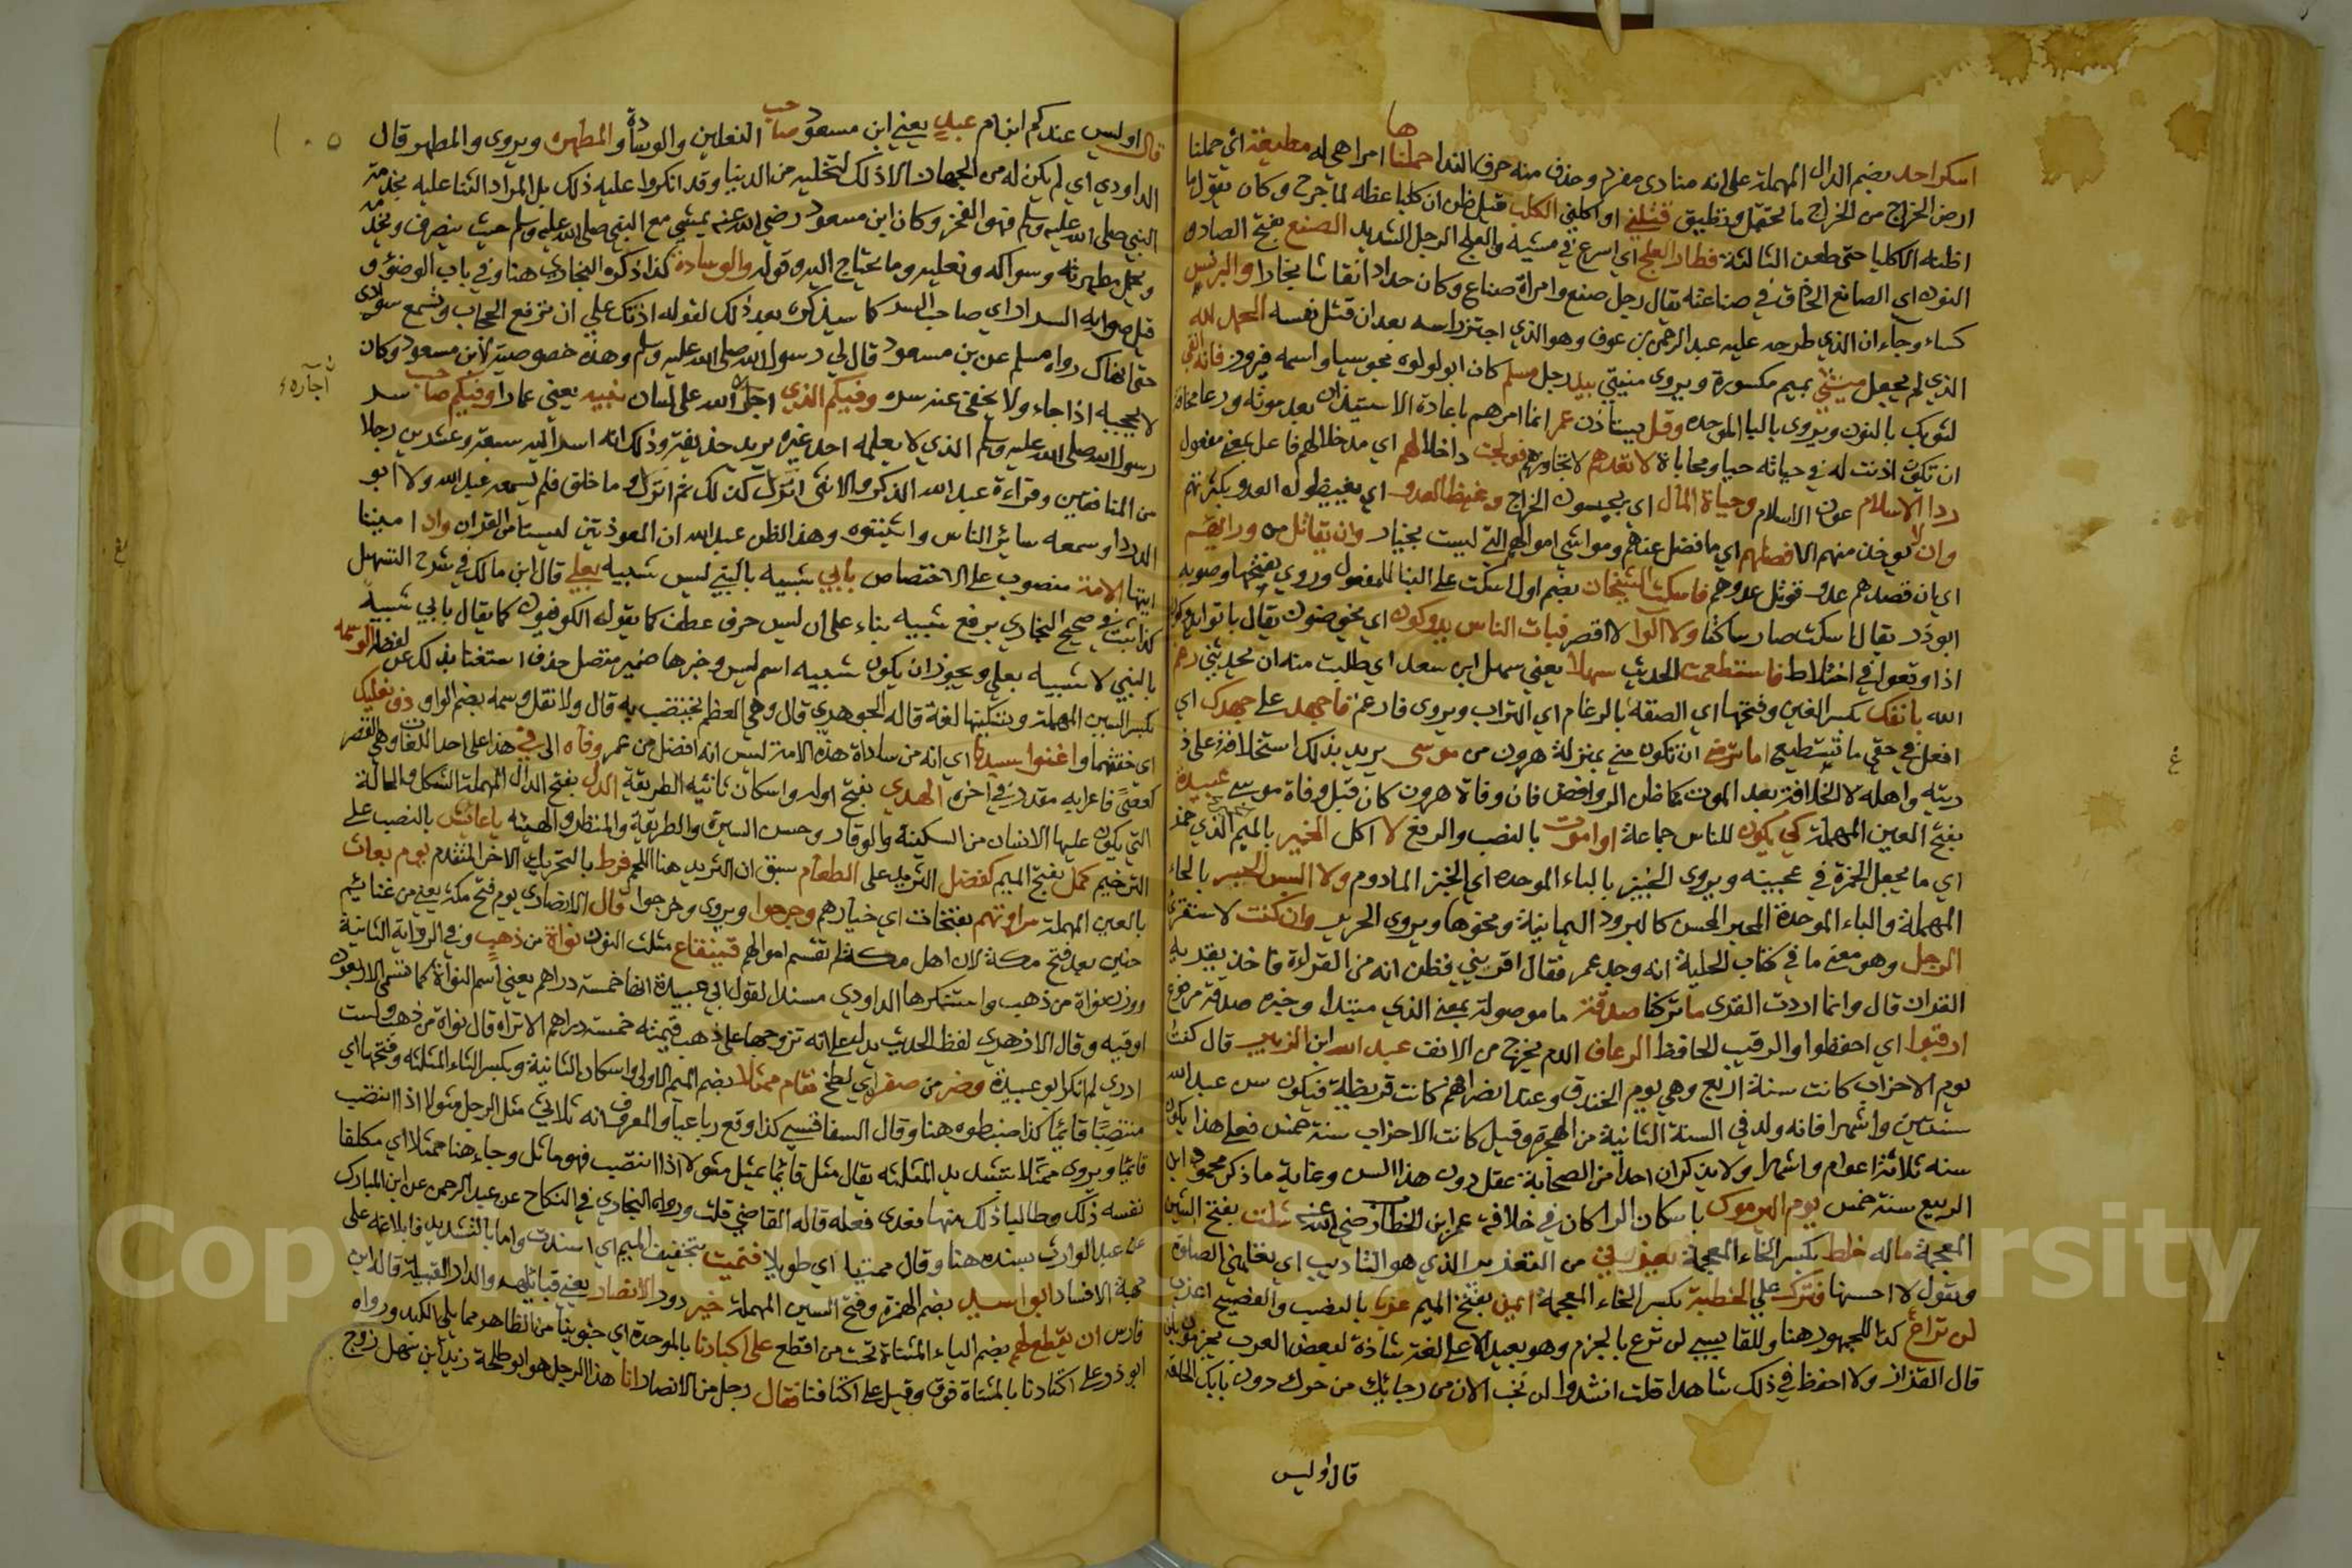 اسكن احد بضم الدال المهملة على انه منادى مفرد وحذف منه حرف الندا حملناها امرا هي له مطيقة اي حملنا
ارض الخراج من الخراج ما تحتمل وتطيق قتلني او اكلني الكلب قيل ظن ان كلبا عظه لما جرح وكان يقول ما
اظنه الا كلبا حتى طعن الثالثة فطار العلج اي اسرع في مشيه والعلج الرجل الشديد الصنع بفتح الصاد و
النون اي الصانع الحاذق في صناعته يقال رجل صنع وامراة صناع وكان حدادا نقاشا نجارا والبرنس
كساء وجاء ان الذي طرحه عليه عبد الرحمن بن عوف وهو الذي اجتز راسه بعد ان قتل نفسه الحمد لله
الذي لم يجعل ميتتي بميم مكسورة ويروى منيتي بيد رجل مسلم كان ابو لولوه مجوسيا واسمه فيروز فانه انقى
لثوبك بالنون ويروى بالبا الموحده وقل يستاذن عمر انما امرهم باعادة الاستيذان بعد موته ورعا مخافة
ان تكون اذنت له في حياته حيا ومحاباة لا تعدهم لا تتجاوزهم فولجت داخلا لهم اي مدخلا لهم فاعل بمعنى مفعول
ردا الاسلام عون الاسلام وجباة المال اي يجبون الخراج وغيظ العدو اي يغيظون العدو بكثرتهم
وان لا يوخذ منهم الا فضلهم اي ما فضل عنهم ومواشي اموالهم التي ليست بخيار وان يقاتل من ورايهم
اي ان قصدهم عدو قوتل عدوهم فاسكت الشيخان بضم اول اسكت على البنا للمفعول وروي بفتحها وصوبه
ابو ذر يقال اسكت صار ساكتا ولا آلوا لا اقصر فبات الناس يدوكون اي يخوضون يقال باتوا يدوكون
اذا وقعوا في اختلاط فاستطعمت الحديث سهلا يعني سهل ابن سعد اي طلبت منه ان يحدثني رغم
الله بانفك بكسر الغين وفتحها اي الصقه بالرغام اي التراب ويروى فارغم فاجهد على جهدك اي
افعل في حقي ما تستطيع اما ترضى ان تكون مني بمنزلة هرون من موسى يريد بذلك استخلافه على ذ
ريته واهله لا الخلافة بعد الموت كما ظن الروافض فان وفاة هرون كان قبل وفاة موسى عبيدة
بفتح العين المهملة كي يكون للناس جماعة او اموت بالنصب والرفع لا اكل الخمير بالميم الذي خمر
اي ما يجعل الخمرة في عجينه ويروى الخبيز بالباء الموحده اي الخبز المادوم ولا البس الحبير بالحاء
المهملة والباء الموحدة المحبر المحسن كالبرود اليمانية ونحوها ويروى الحرير وان كنت لاستقرئ
الرجل وهو معنى ما في كتاب الحلية انه وجد عمر فقال اقريني فظن انه من القراءة فاخذ يقريه
القران قال وانما اردت القرى ما تركنا صدقة ما موصولة بمعنى الذي مبتدا وخبره صدقة مرفوع
ارقبوا اي احفظوا والرقيب الحافظ الرعاف الدم يخرج من الانف عبد الله ابن الزبير قال كنت
يوم الاحزاب كانت سنة اربع وهي يوم الخندق وعند انصرافهم كانت قريظة فيكون سن عبد الله
سنتين واشهرا فانه ولد في السنة الثانية من الهجرة وقيل كانت الاحزاب سنة خمس فعلى هذا يكون
سنه ثلاثة اعوام واشهرا ولا يذكر ان احدا من الصحابة عقل دون هذا السن وغاية ما ذكر محمود ابن
الربيع سنة خمس يوم اليرموك باسكان الرا كان في خلافة عمر ابن الخطاب رضي الله عنه شلت بفتح الشين
المعجمة ماله خلط بكسر الخاء المعجمة يعزرني من التعذير الذي هو التاديب اي يعلمني الصلوة
ويقول لا احسنها فترك علي الخطبة بكسر الخاء المعجمة ايمن بفتح الميم عزبا بالنصب والفصيح اعزب
لن تراع كذا للجمهور هنا وللقابسي لن ترع بالجزم وهو بعيد الا على لغة شاذة لبعض العرب يجزمون بلن
قال القزاز ولا احفظ في ذلك شاهدا قلت انشدوا لن يخب الان من رجايك من حرك دون بابك الحلقه
قال اوليس
قال اوليس عندكم ابن ام عبد يعني ابن مسعود صاحب النعلين والوسادة والمطهره ويروى والمطهر قال
الداودي اي لم يكن له من الجهاز الا ذلك لتخليه من الدنيا وقد انكروا عليه ذلك بل المراد الثنا عليه بخدمة
النبي صلى الله عليه وسلم فهو الفخر وكان ابن مسعود رضي الله عنه يمشي مع النبي صلى الله عليه وسلم حيث ينصرف ويخدمه
ويحمل مطهرته وسواكه ونعليه وما يحتاج اليه وقوله والوسادة كذا ذكره البخاري هنا وفي باب الوضوء و
قيل صوابه السواد اي صاحب السر كما سيذكره بعد ذلك لقوله اذنك علي ان ترفع الحجاب وتسمع سوادي
حتى انهاك رواه مسلم عن بن مسعود قال لي رسول الله صلى الله عليه وسلم وهذه خصوصية لابن مسعود وكان
لا يحجبه اذا جاء ولا يخفى عنه سره وفيكم الذي اجاره الله على لسان نبيه يعني عمارا وفيكم صاحب سر
رسول الله صلى الله عليه وسلم الذي لا يعلمه احد غيره يريد حذيفة وذلك انه اسر اليه سبعة وعشرين رجلا
من المنافقين وقراءة عبد الله الذكر والانثى انزل كذلك ثم انزل وما خلق فلم يسمعه عبد الله ولا ابو
الدرداء وسمعه سائر الناس واثبتوه وهذا لظن عبد الله ان المعوذتين ليستا من القران وان اميننا
ايتها الامة منصوب على الاختصاص بابي شبيه بالنبي ليس شبيه بعلي قال ابن مالك في شرح التسهيل
كذا ثبت في صحيح البخاري برفع شبيه بناء على ان ليس حرف عطف كما يقوله الكوفيون كما يقال بابي شبيه
بالنبي لا شبيه بعلي ويجوز ان يكون شبيه اسم ليس وخبرها ضمير متصل حذف استغنا بذلك عن لفظه الوسمه
بكسر السين المهملة وتسكينها لغة قاله الجوهري قال وهي العظلم يختضب به قال ولا تقل وسمه بضم الواو دف نعليك
اي خفقهما واعتقوا سيدنا اي انه من سادة هذه الامة ليس انه افضل من عمر وفاه الى في هذا على احد اللغات وهي القصر
كعصى فاعرابه مقدر في اخره الهدي بفتح اوله واسكان ثانيه الطريقة الدل بفتح الدال المهملة الشكل والحالة
التي يكون عليها الانسان من السكينة والوقار وحسن السيرة والطريقة والمنظر والهيئة يا عائش بالنصب على
الترخيم كمل بفتح الميم كفضل الثريد على الطعام سبق ان الثريد هنا اللحم فرط بالتحريك الاخر المتقدم يوم بعاث
بالعين المهملة سراوتهم بفتحات اي خيارهم وجرحوا ويروى وخرجوا قال الانصاري يوم فتح مكة يعني من غنايم
حنين بعد فتح مكة لان اهل مكة لم تقسم اموالهم قينقاع مثلث النون نواة من ذهب وفي الرواية الثانية
وزن نواة من ذهب واستنكرها الداودي مستدلا لقول ابي عبيدة انها خمسة دراهم يعني اسم النواة كما تسمى الاربعون
اوقية وقال الازهري لفظ الحديث يدل على انه تزوجها على ذهب قيمته خمسة دراهم الا تراه قال نواة من ذهب ولست
ادري لم انكر ابو عبيدة وضر من صفر اي لطخ فقام ممثلا بضم الميم الاولى واسكان الثانية وبكسر الثاء المثلثه وفتحها اي
منتصبا قائما كذا ضبطوه هنا وقال السفاقسي كذا وقع رباعيا والمعروف انه ثلاثي مثل الرجل مثولا اذا انتصب
قائما ويروى ممثلا بتشديد المثلثه يقال مثل قائما يمثل مثولا اذا انتصب فهو ماثل وجاء هنا ممثلا اي مكلفا
نفسه ذلك وطالبا ذلك منها فعدى فعله قاله القاضي قلت ورواه البخاري في النكاح عن عبد الرحمن عن ابن المبارك
عن عبد الوارث بسنده هنا وقال ممتنا اي طويلا فنميت بتخفيف الميم اي اسندت واما بالتشديد فابلاغه على
جهة الافساد ابو اسيد بضم الهمزة وفتح السين المهملة خير دور الانصار يعني قبائلهم والدار القبيلة قاله ابن
فارس ان يقطع لهم بضم الياء المثناة تحت من اقطع على اكبادنا بالموحدة اي جنوبنا من الظاهر مما يلي الكبد ورواه
ابو ذر على اكتادنا بالمثناة فوق وقيل على اكتافنا فقال رجل من الانصار انا هذا الرجل هو ابو طلحة زيد ابن سهل زوج
اجاره
Copyright © King Saud University